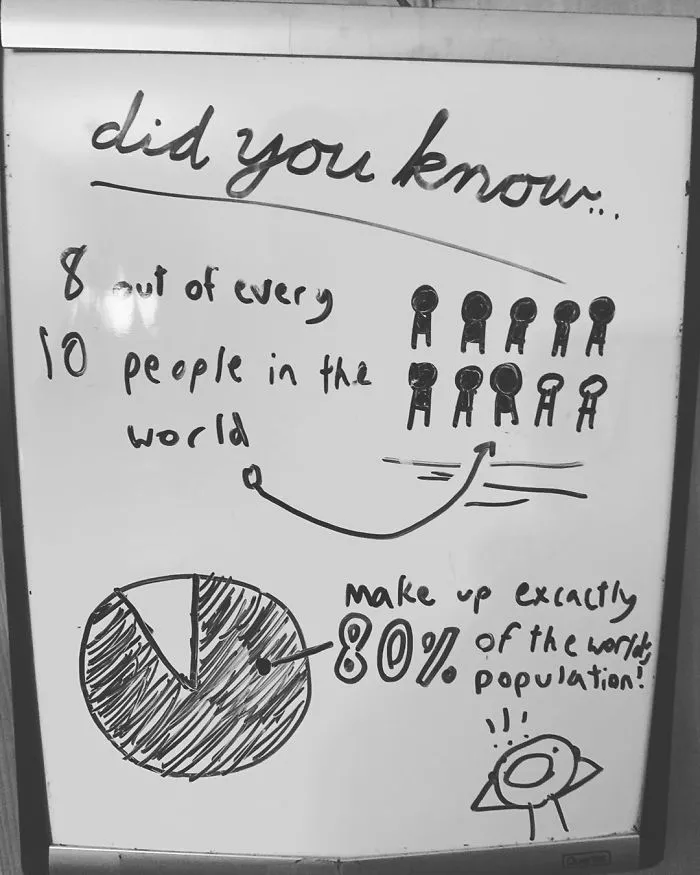 did you know...
8 out of every
10 people in the
world
make up excactly
80% of the worlds
population!
!!!